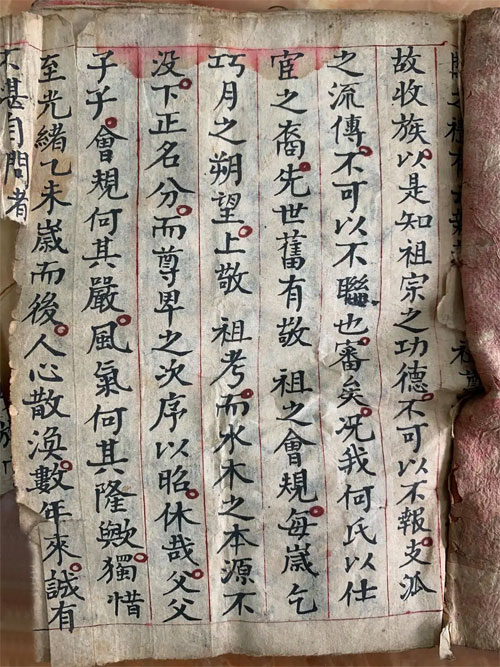 故收族以是知祖宗之功德不可以不報支泒
之流傳不可以不聯也審矣况我何氏以仕
宦之裔先世舊有敬 祖之會規每歲乞
巧月之朔望上敬 祖考而水木之本源不
没下正名分而尊卑之次序以昭休哉父父
子子會規何其嚴風氣何其隆歟獨惜
至光緒乙未歲而後人心散渙數年來誠有
不堪自問者